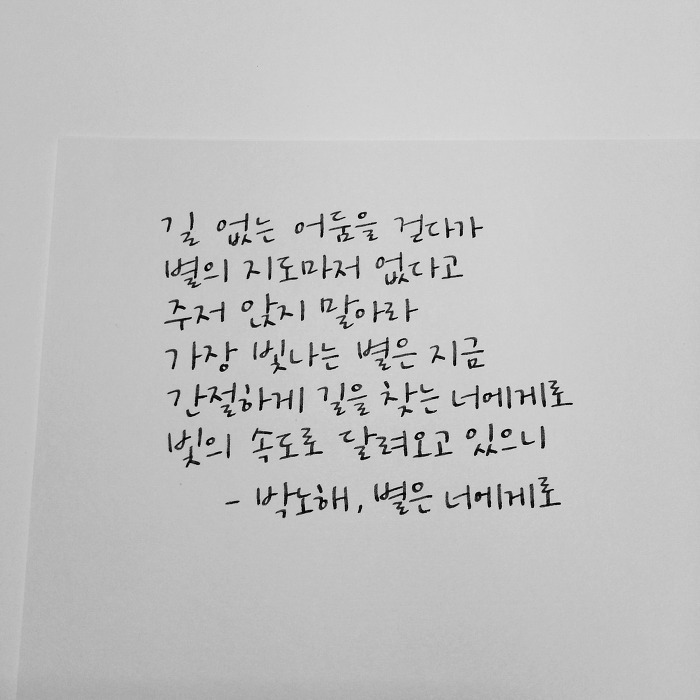 길 없는 어둠을 걷다가
별의 지도마저 없다고
주저 앉지 말아라
가장 빛나는 별은 지금
간절하게 길을 찾는 너에게로
빛의 속도로 달려오고 있으니
- 박노해, 별은 너에게로